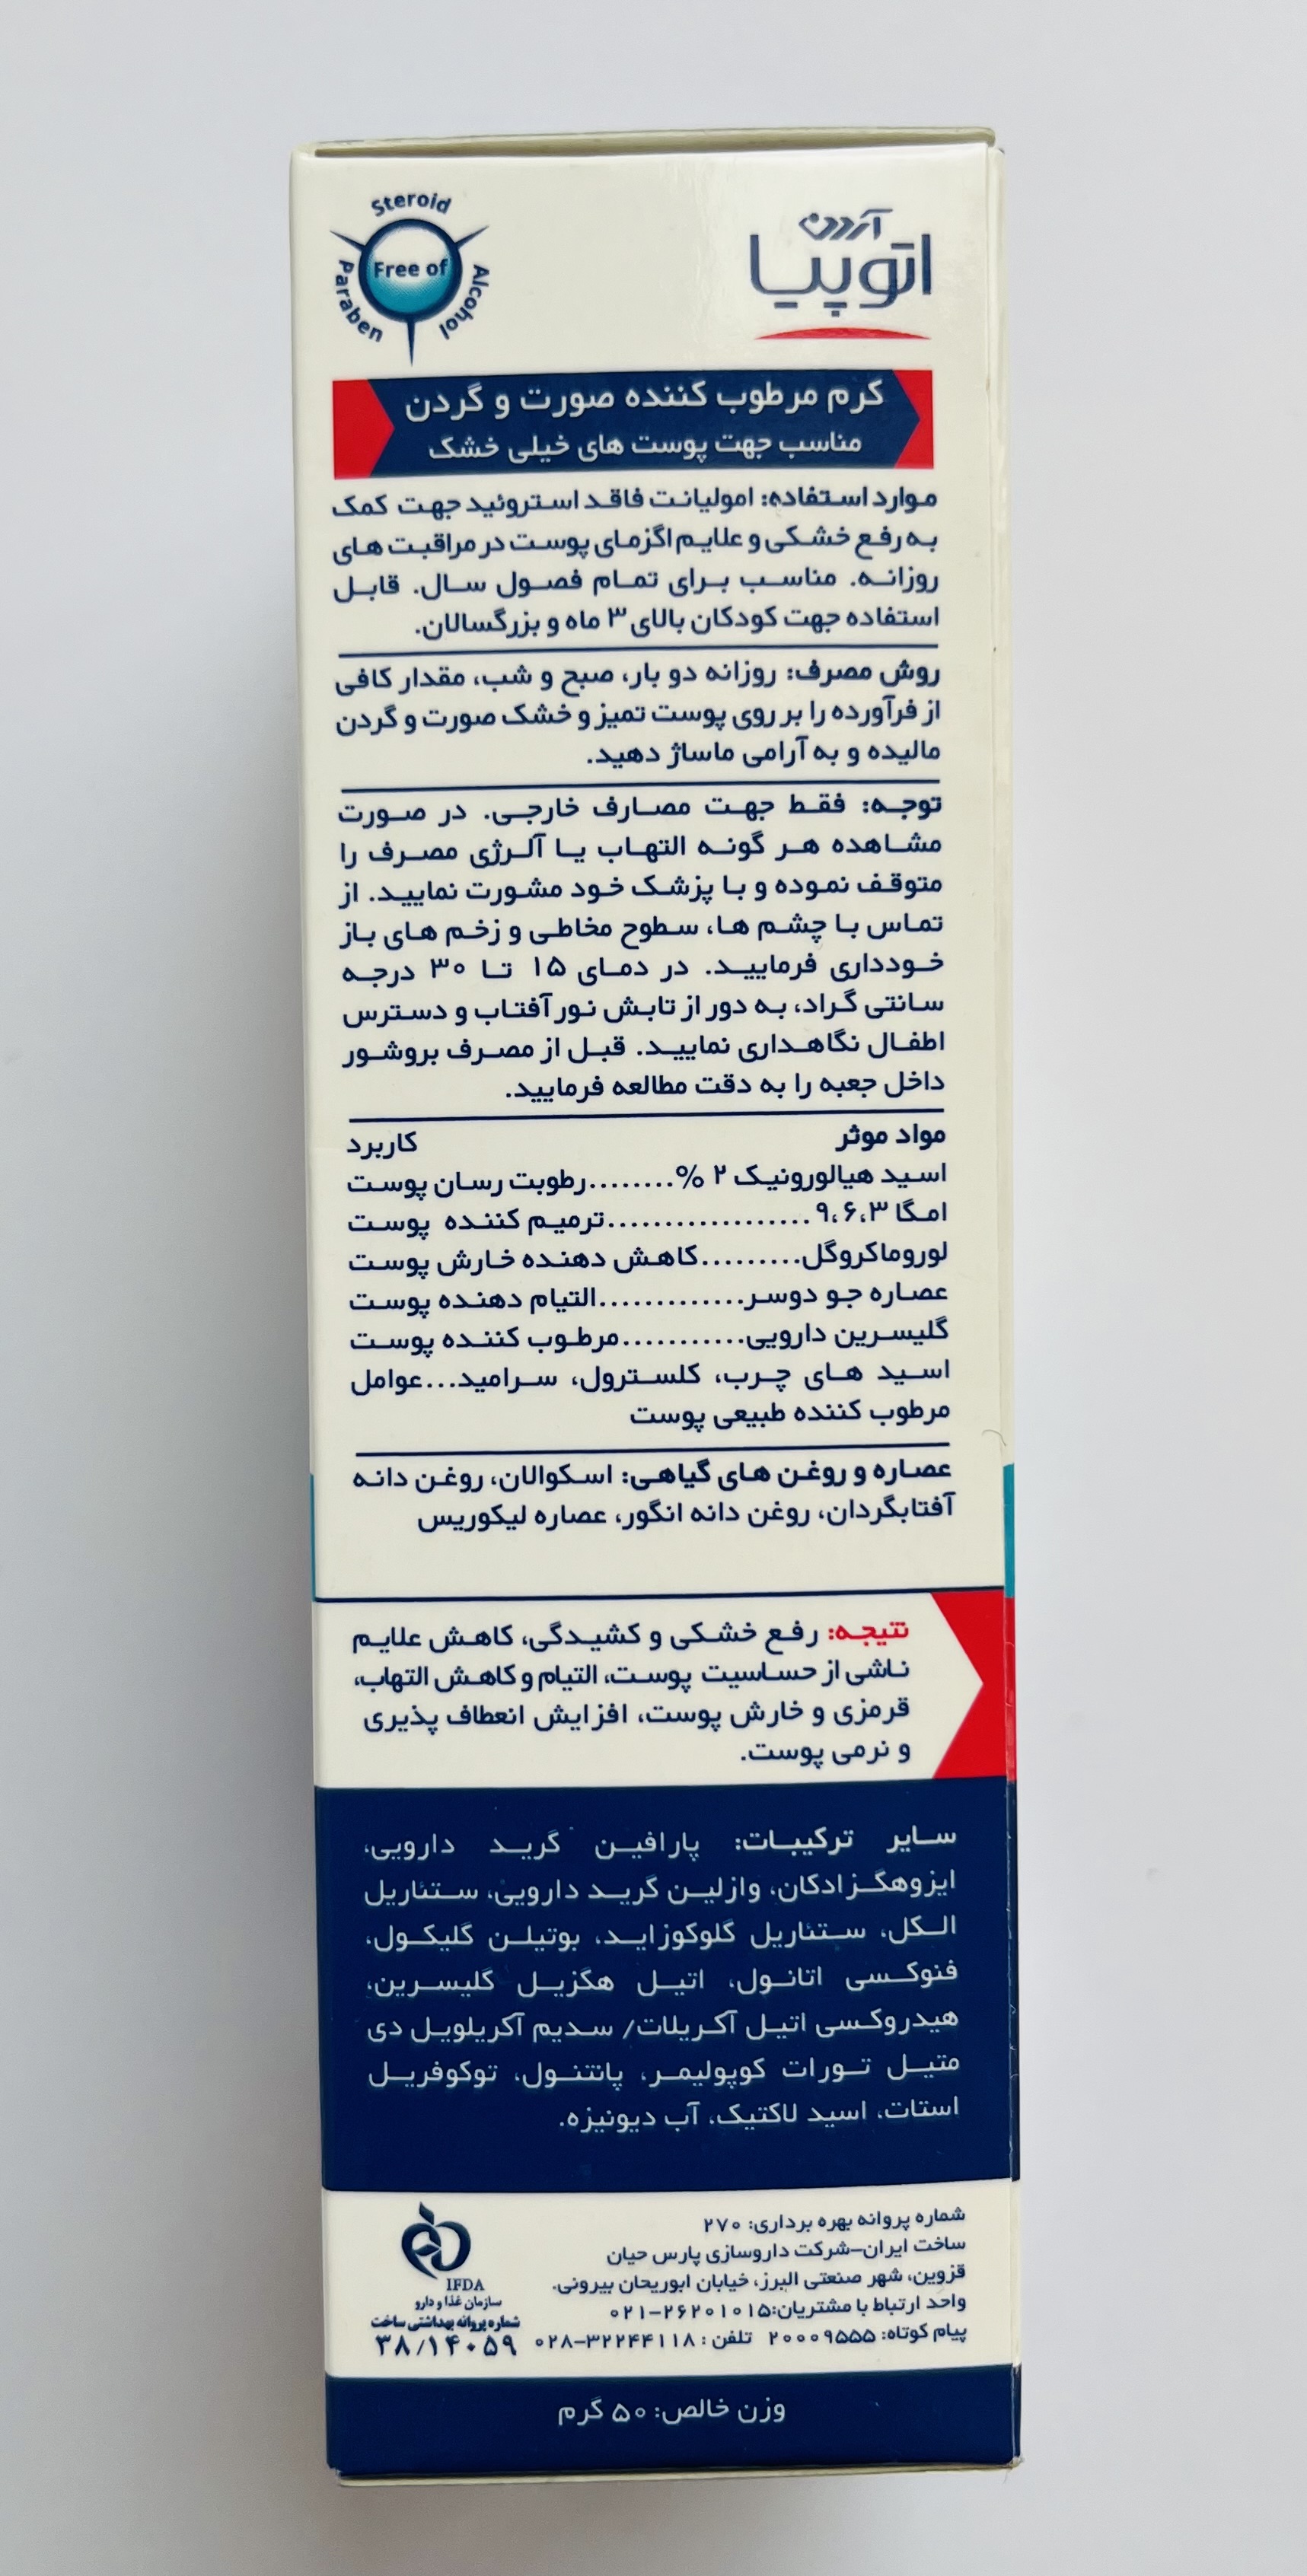 Steroid
Free of
Paraben
Alcohol
آردن
اتوپیا
کرم مرطوب کننده صورت و گردن
مناسب جهت پوست های خیلی خشک
موارد استفاده: امولیانت فاقد استروئید جهت کمک
به رفع خشکی و علایم اگزمای پوست در مراقبت های
روزانه. مناسب برای تمام فصول سال. قابل
استفاده جهت کودکان بالای ۳ ماه و بزرگسالان.
روش مصرف: روزانه دو بار، صبح و شب، مقدار کافی
از فرآورده را بر روی پوست تمیز و خشک صورت و گردن
مالیده و به آرامی ماساژ دهید.
توجه: فقط جهت مصارف خارجی. در صورت
مشاهده هر گونه التهاب یا آلرژی مصرف را
متوقف نموده و با پزشک خود مشورت نمایید. از
تماس با چشم ها، سطوح مخاطی و زخم های باز
خودداری فرمایید. در دمای ۱۵ تا ۳۰ درجه
سانتی گراد، به دور از تابش نور آفتاب و دسترس
اطفال نگاهداری نمایید. قبل از مصرف بروشور
داخل جعبه را به دقت مطالعه فرمایید.
مواد موثر کاربرد
اسید هیالورونیک ۲ %........رطوبت رسان پوست
امگا ۳،۶،۹..................ترمیم کننده پوست
لوروماکروگل.........کاهش دهنده خارش پوست
عصاره جو دوسر.............التیام دهنده پوست
گلیسرین دارویی...........مرطوب کننده پوست
اسید های چرب، کلسترول، سرامید...عوامل
مرطوب کننده طبیعی پوست
عصاره و روغن های گیاهی: اسکوالان، روغن دانه
آفتابگردان، روغن دانه انگور، عصاره لیکوریس
نتیجه: رفع خشکی و کشیدگی، کاهش علایم
ناشی از حساسیت پوست، التیام و کاهش التهاب،
قرمزی و خارش پوست، افزایش انعطاف پذیری
و نرمی پوست.
سایر ترکیبات: پارافین گرید دارویی،
ایزوهگزادکان، وازلین گرید دارویی، ستئاریل
الکل، ستئاریل گلوکوزاید، بوتیلن گلیکول،
فنوکسی اتانول، اتیل هگزیل گلیسرین،
هیدروکسی اتیل آکریلات/ سدیم آکریلویل دی
متیل تورات کوپولیمر، پانتنول، توکوفریل
استات، اسید لاکتیک، آب دیونیزه.
شماره پروانه بهره برداری: ۲۷۰
ساخت ایران-شرکت داروسازی پارس حیان
قزوین، شهر صنعتی البرز، خیابان ابوریحان بیرونی.
واحد ارتباط با مشتریان:۲۶۲۰۱۰۱۵-۰۲۱
پیام کوتاه: ۲۰۰۰۹۵۵۵ تلفن : ۳۲۲۴۴۱۱۸-۰۲۸
IFDA
سازمان غذا و دارو
شماره پروانه بهداشتی ساخت
۳۸/۱۴۰۵۹
وزن خالص: ۵۰ گرم